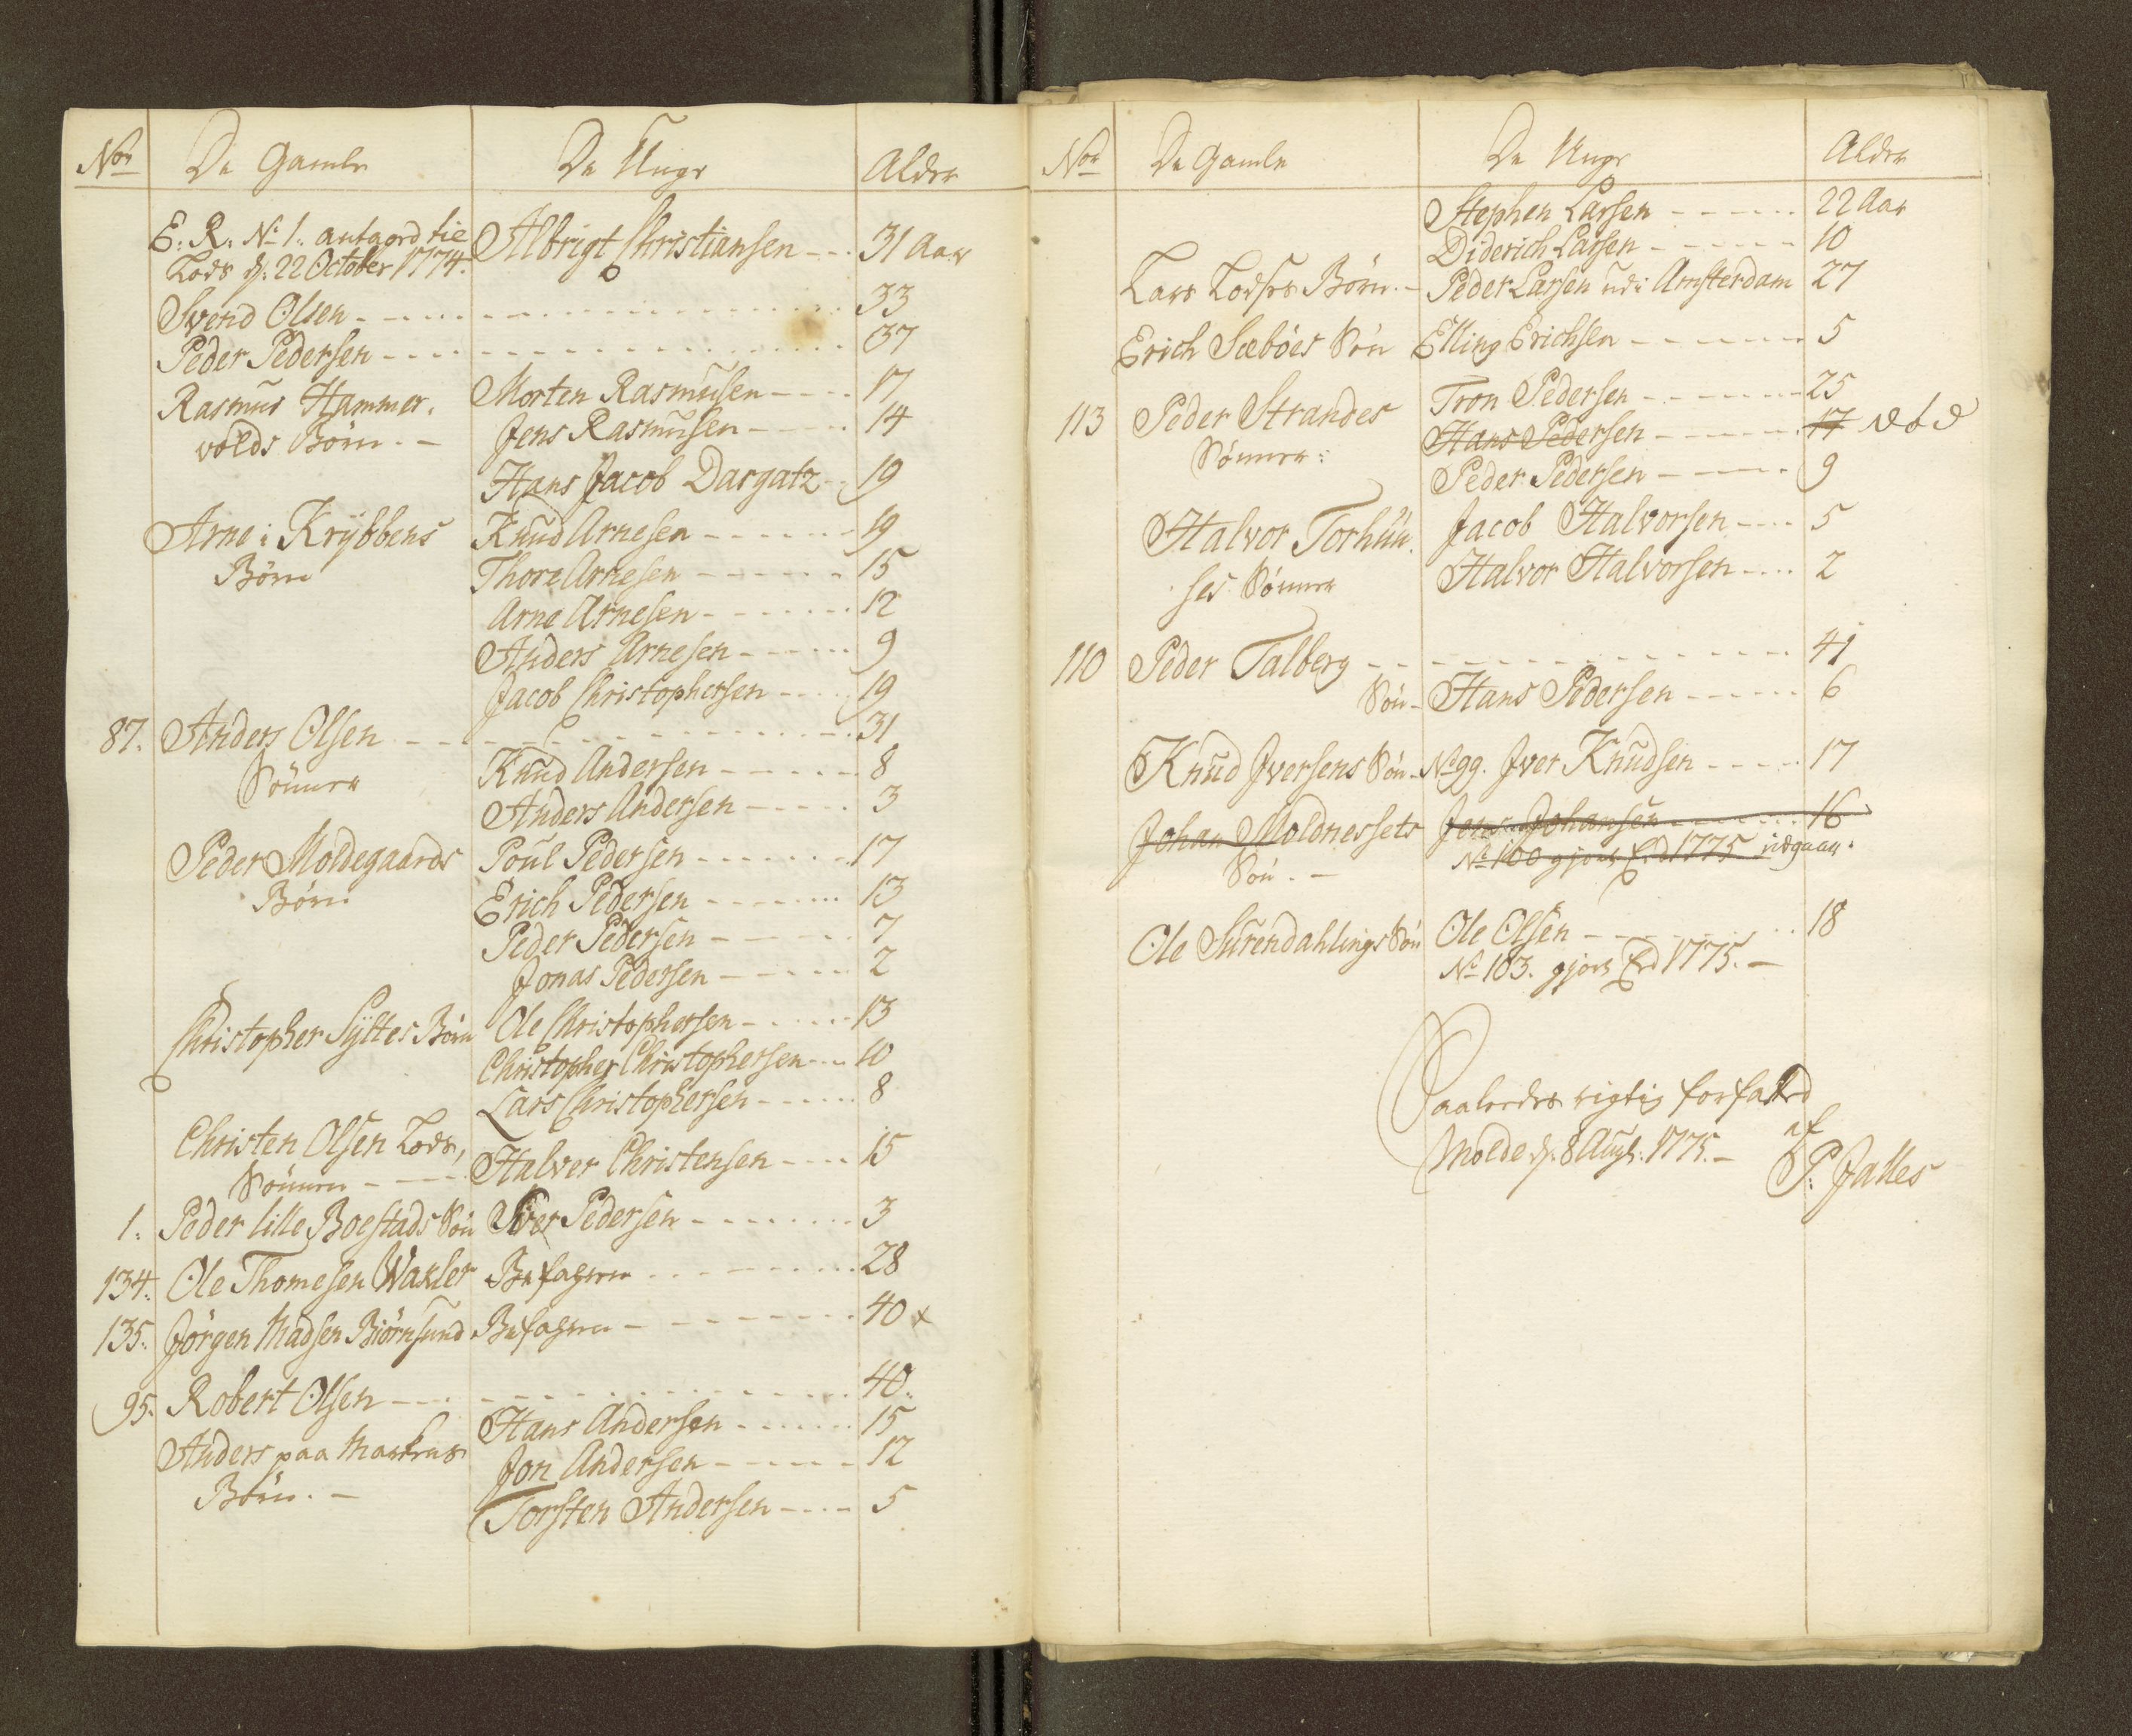 No De Gamle De Unge Alder
E: R: No 1. antagen til Albrigt Christiansen 31 Aar
Lods d. 22 October 1774.
Svend Olsen 33
Peder Pedersen 37
Rasmus Hammer- Morten Rasmusen 17
volds Börn. Jens Rasmusen 14
Hans Jacob Dargatz 19
Arne i Krybbens Knud Arnesen 19
Börn Thore Arnesen 15
Arne Arnesen 12
Anders Arnesen 9
Jacob Christophersen 19
87. Anders Olsen 31
Sönner Knud Andersen 8
Anders Andersen 3
Peder Moldegaards Poul Pedersen 17
Börn Erich Pedersen 13
Peder Pedersen 7
Jonas Pedersen 2
Christopher Syltes Börn Ole Christophersen 13
Christopher Christophersen 10
Lars Christophersen 8
Christen Olsen Lods,
Sönner Halver Christensen 15
1. Peder lille Boestads Sön Iver Pedersen 3
134. Ole Thomesen Waxler Befahren 28
135. Jörgen Madsen Biörnsund Befahren 40 x
95. Robert Olsen 40.
Anders paa Markens Hans Andersen 15
Börn. Jon Andersen 12
Torsten Andersen 5
No De Gamle De Unge Alder
Stephen Larsen 22 Aar
Diderich Larsen 10
Lars Lodses Börn. Peder Larsen udi Amsterdam 27
Erich Sæböes Sön Elling Erichsen 5
113 Peder Strandes Tron Pedersen 25
Sönner: Hans Pedersen 17 död
Peder Pedersen 9
Halvor Torhuu- Jacob Halvorsen 5
ses Sönner Halvor Halvorsen 2
110 Peder Talberg 41
Sön Hans Pedersen 6
Knud Iversens Sön No 99. Iver Knudsen 17
Johan Moldnessets Jens Johansen 16
Sön. No 100 gjort Ed 1775 udgaar.
Ole Surendahlings Sön Ole Olsen 18
No 103. gjort Ed 1775.
Saaledes rigtig forfatted
Molde d. 8 Augs: 1775. af
P: Jalles